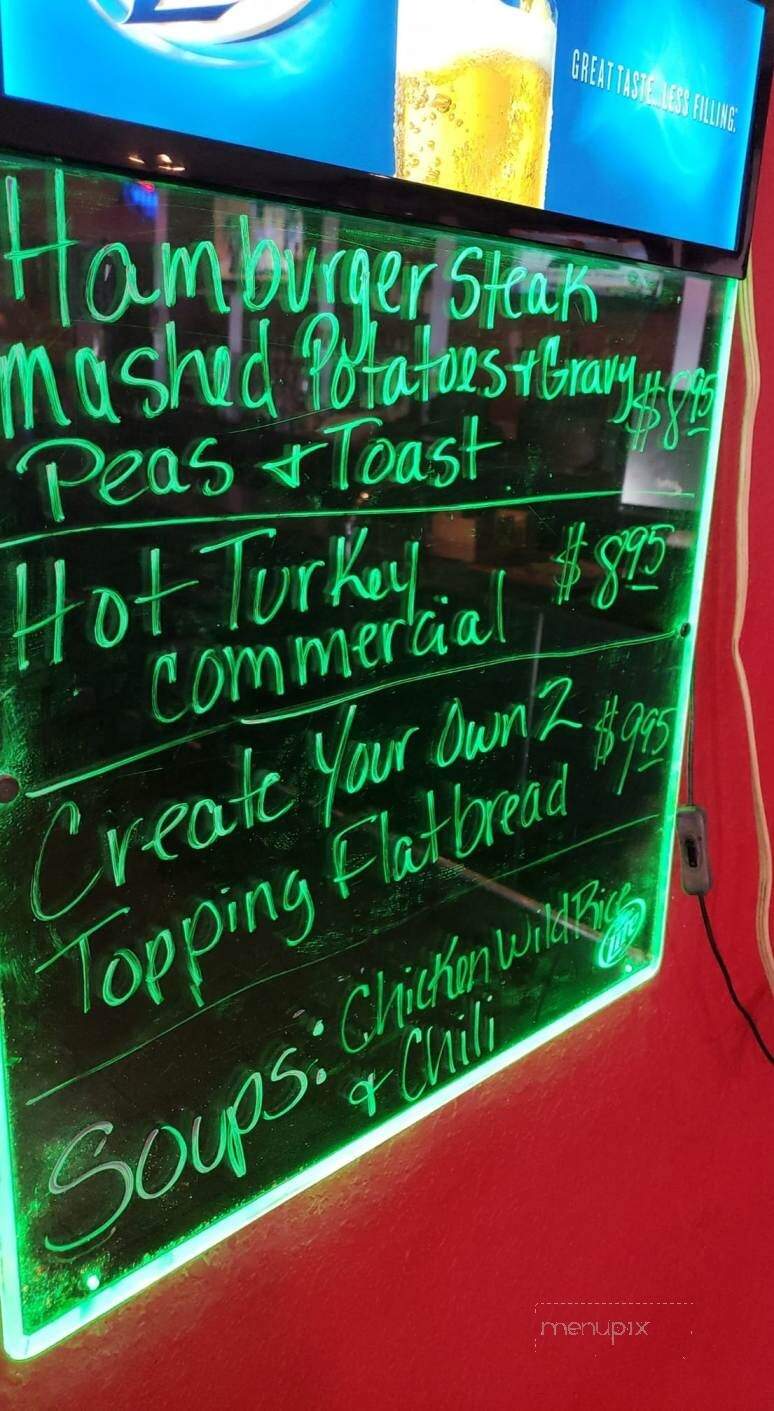 GREAT TASTE. LESS FILLING.
Hamburger Steak
mashed Potatoes + Gravy $8.95
Peas + Toast
Hot Turkey $8.95
commercial
Create Your Own 2 $9.95
Topping Flatbread
Soups: Chicken Wild Rice
+ Chili
Lite
menupix